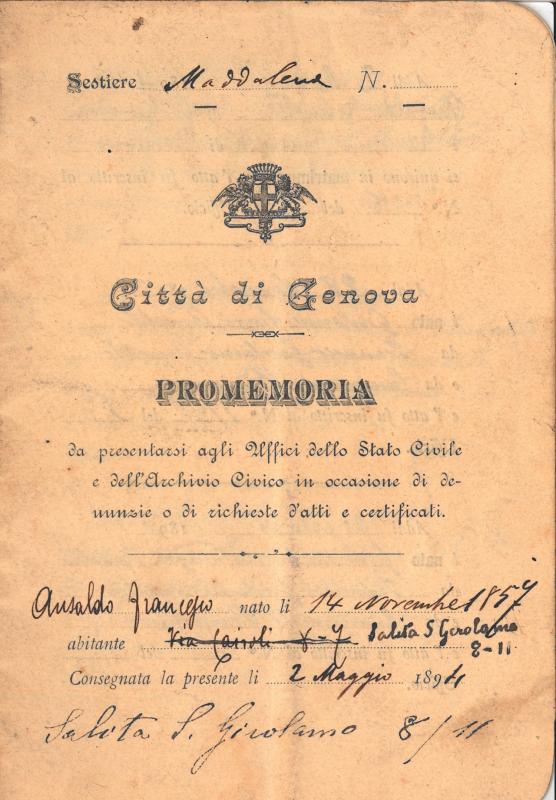 Sestiere Maddalena N.
Città di Genova
PROMEMORIA
da presentarsi agli Uffici dello Stato Civile
e dell'Archivio Civico in occasione di de-
nunzie o di richieste d'atti e certificati.
Ansaldo Francesco nato li 14 Novembre 1857
abitante Via Cairoli 8-7 Salita S Gerolamo
8-11
Consegnata la presente li 2 Maggio 1894
Salita S. Girolamo 8/11